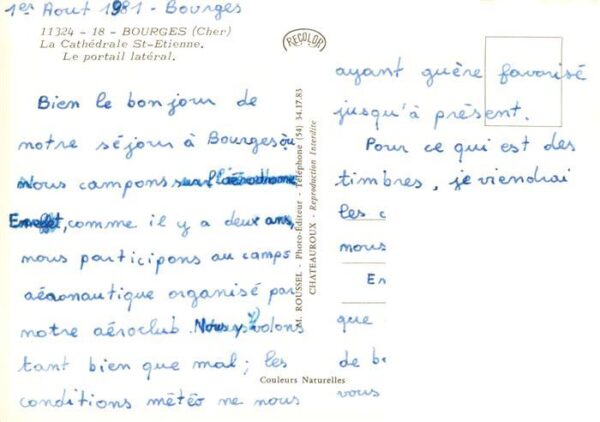 1er Aout 1981 - Bourges
11324 - 18 - BOURGES (Cher)
La Cathédrale St-Etienne.
Le portail latéral.
RECOLOR
Bien le bonjour de
notre séjour à Bourges où
nous campons sur l'aérodrome
En effet, comme il y a deux ans,
nous participons au camps
aéronautique organisé par
notre aéroclub. Nous y volons
tant bien que mal ; les
conditions météo ne nous
M. ROUSSEL - Photo-Editeur - Téléphone (54) 34.17.83
CHATEAUROUX - Reproduction Interdite
Couleurs Naturelles
ayant guère favorisé
jusqu'à présent.
Pour ce qui est des
timbres, je viendrai
les
nous
En
que
de b
vous